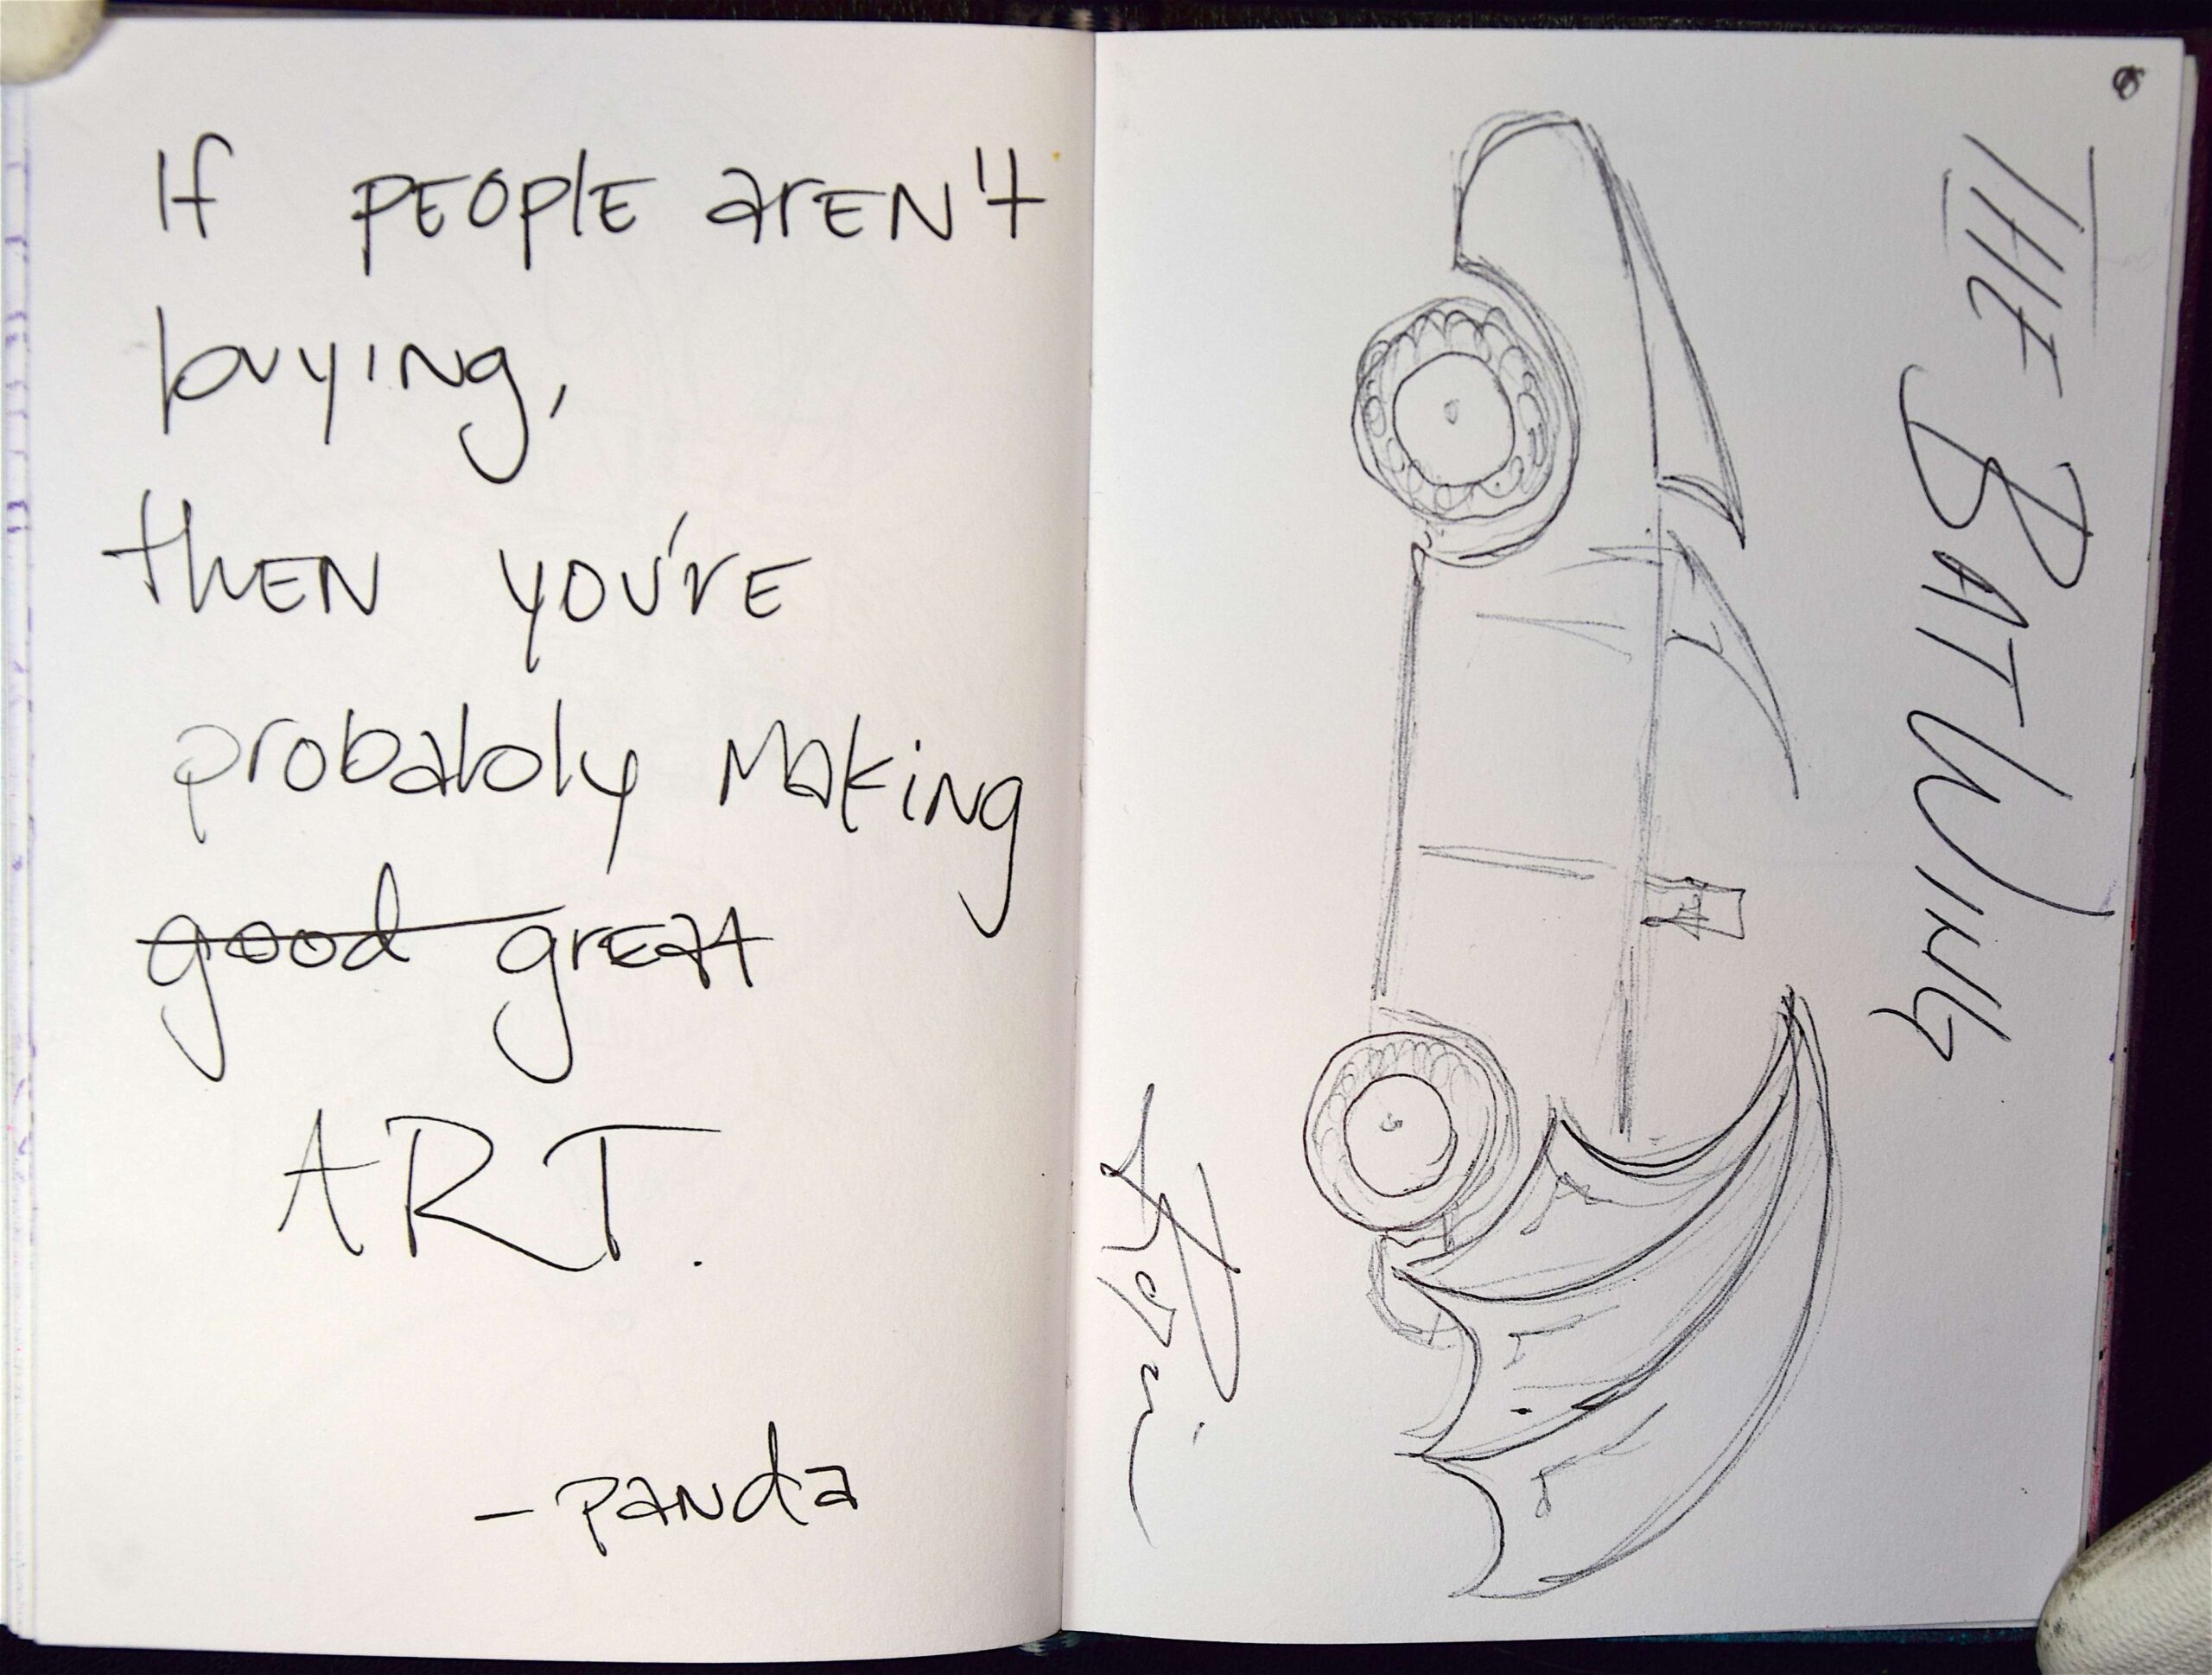 If people aren't
buying,
then you're
probably making
~~good~~ great
ART.
- panda
THE BATWING